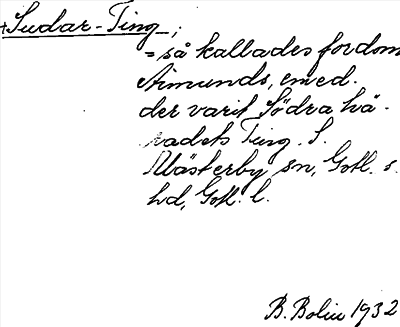 +Sudar-Ting;
= så kallades fordom
Aimunds, emed.
der varit Södra hä-
radets Ting. S.
Mästerby sn, Gotl. s.
hd, Gotl. l.
B. Bolin 1932